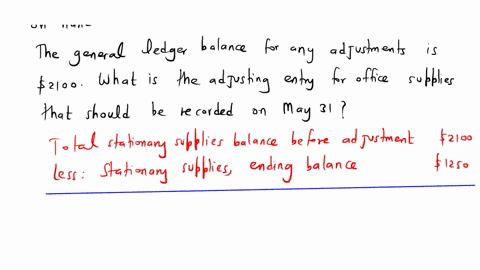 The general ledger balance for any adjustments is
$2100. What is the adjusting entry for office supplies
that should be recorded on May 31?
Total stationary supplies balance before adjustment $2100
Less: Stationary supplies, ending balance $1250